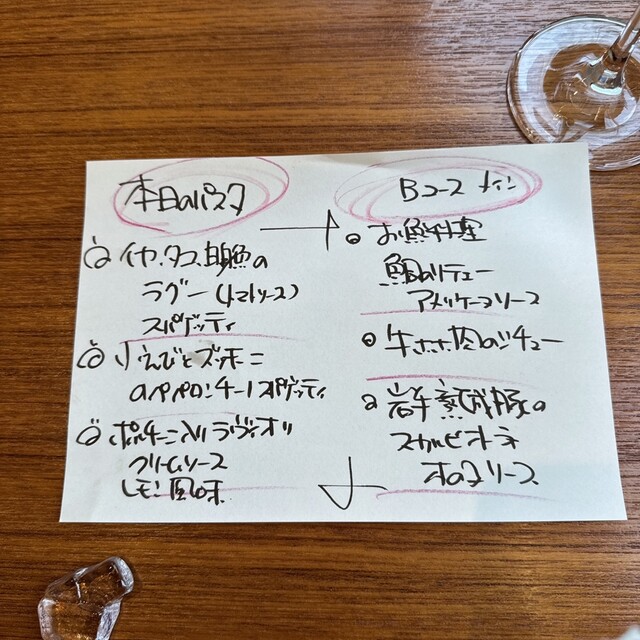 本日のパスタ
イカ、タコ、白身魚の
ラグー(トマトソース)
スパゲッティ
小えびとズッキーニ
のペペロンチーノスパゲッティ
ポルチーニ入りラヴィオリ
クリームソース
レモン風味
Bコース メイン
お魚料理
鯛のポワレ
アメリケーヌソース
牛ホホ肉のシチュー
岩手熟成豚の
スカロピオーネ
きのこソース